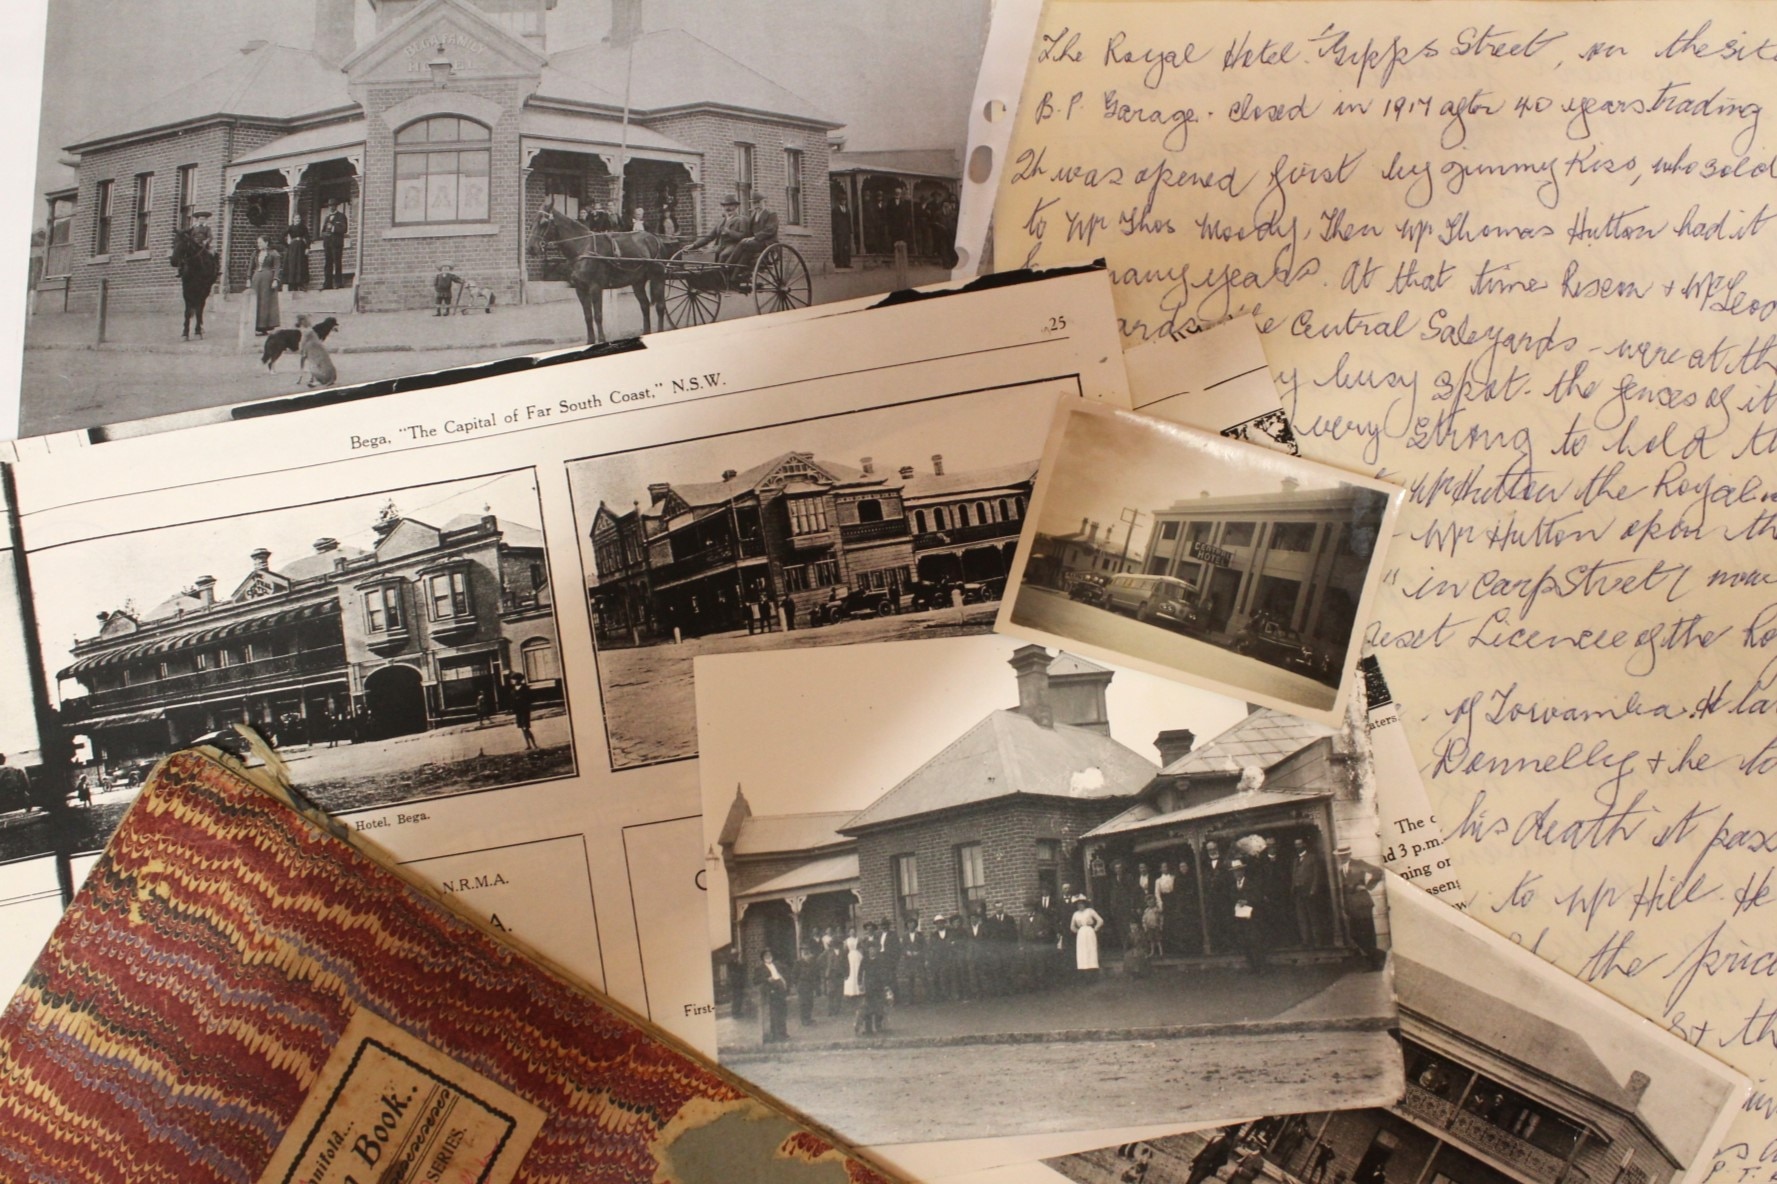 BEGA FAMILY
HOTEL
BAR
25
Bega, "The Capital of Far South Coast," N.S.W.
CENTRAL
HOTEL
Hotel, Bega.
N.R.M.A.
A.
First-
aters.
The c
nd 3 p.m.
ning or
ssen
Manifold...
Book..
SERIES.
The Royal Hotel Gipps Street, on the site
B.P. Garage. closed in 1917 after 40 years trading
It was opened first by Jimmy Kiss, who sold
to Mr Thos Moody, Then Mr Thomas Hutton had it
many years. At that time Rixon + McLeod
Central Saleyards - were at the
y busy spot. the fences of it
very strong to hold th
Mr Hutton the Royal
Mr Hutton open the
" in Carp Street ( now
Licencee of the ho
of Towamba. H la
Donnelly + he to
his death it pass
to Mr Hill. He
the price
st th